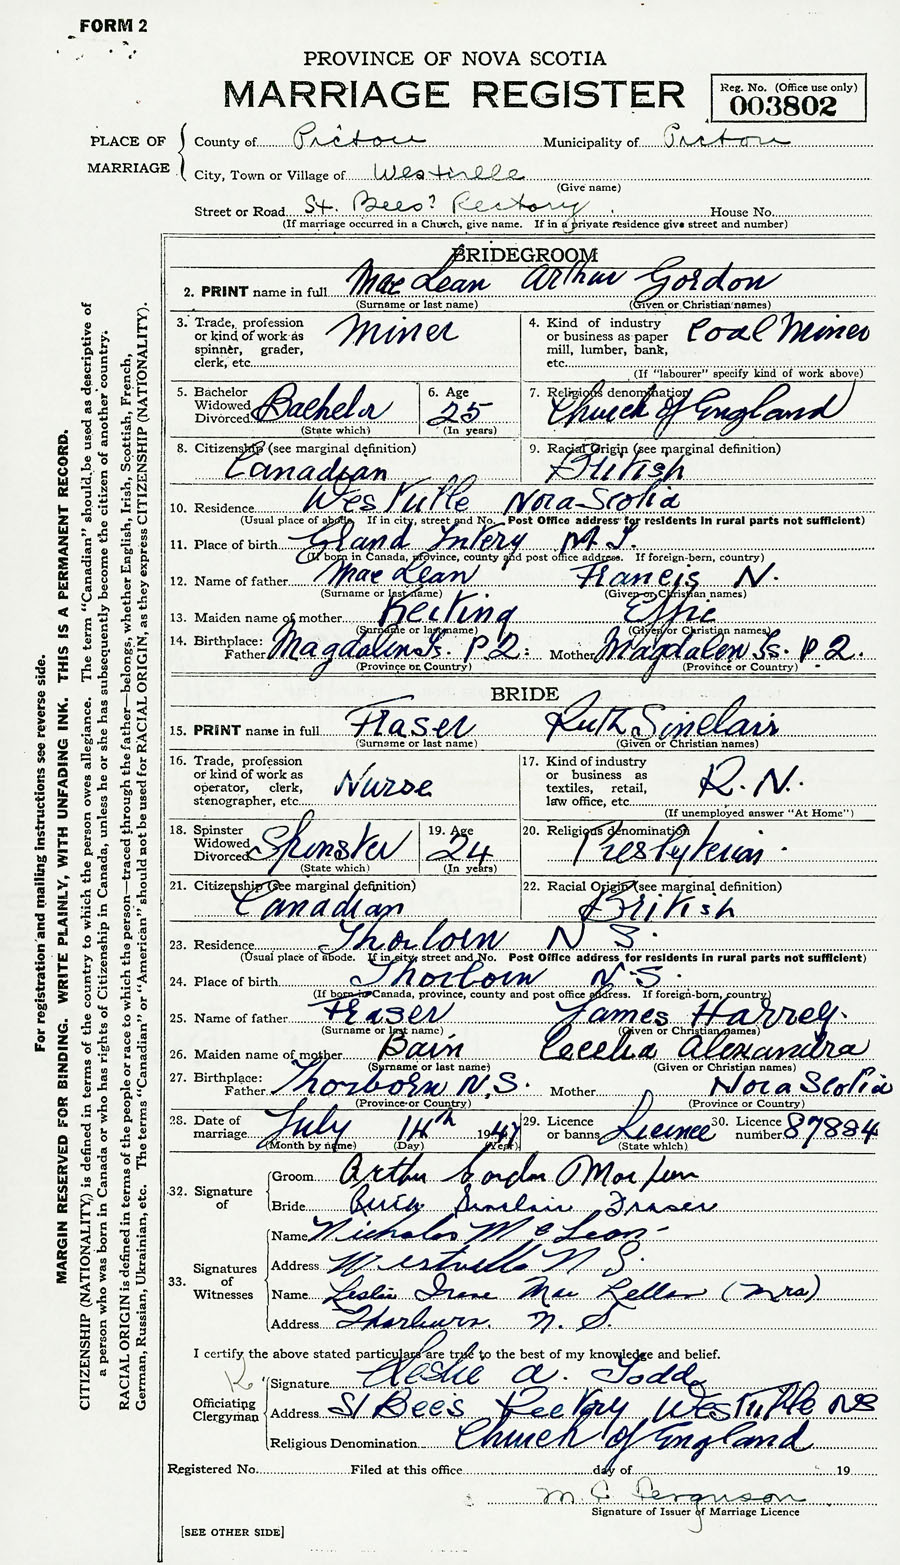 FORM 2
PROVINCE OF NOVA SCOTIA
MARRIAGE REGISTER
Reg. No. (Office use only)
003802
PLACE OF MARRIAGE
County of Pictou Municipality of Pictou
City, Town or Village of Westville
(Give name)
Street or Road St. Bees' Rectory House No.
(If marriage occurred in a Church, give name. If in a private residence give street and number)
BRIDEGROOM
2. PRINT name in full Mac Lean Arthur Gordon
(Surname or last name) (Given or Christian names)
3. Trade, profession or kind of work as spinner, grader, clerk, etc. Miner
4. Kind of industry or business as paper mill, lumber, bank, etc. Coal Miner
(If "labourer" specify kind of work above)
5. Bachelor Widowed Divorced Bachelor
(State which)
6. Age 25
(In years)
7. Religious denomination Church of England
8. Citizenship (see marginal definition) Canadian
9. Racial Origin (see marginal definition) British
10. Residence Westville Nova Scotia
(Usual place of abode. If in city, street and No. Post Office address for residents in rural parts not sufficient)
11. Place of birth Grand M. I.
(If born in Canada, province, county and post office address. If foreign-born, country)
12. Name of father Mac Lean Francis N.
(Surname or last name) (Given or Christian names)
13. Maiden name of mother Keating Effie
(Surname or last name) (Given or Christian names)
14. Birthplace: Father Magdalen Is. P.Q. Mother Magdalen Is. P.Q.
(Province or Country) (Province or Country)
BRIDE
15. PRINT name in full Fraser Ruth Sinclair
(Surname or last name) (Given or Christian names)
16. Trade, profession or kind of work as operator, clerk, stenographer, etc. Nurse
17. Kind of industry or business as textiles, retail, law office, etc. R.N.
(If unemployed answer "At Home")
18. Spinster Widowed Divorced Spinster
(State which)
19. Age 24
(In years)
20. Religious denomination Presbyterian
21. Citizenship (see marginal definition) Canadian
22. Racial Origin (see marginal definition) British
23. Residence Thorborn N S.
(Usual place of abode. If in city, street and No. Post Office address for residents in rural parts not sufficient)
24. Place of birth Thorborn N.S.
(If born in Canada, province, county and post office address. If foreign-born, country)
25. Name of father Fraser James Harvey
(Surname or last name) (Given or Christian names)
26. Maiden name of mother Bain Cecelia Alexandra
(Surname or last name) (Given or Christian names)
27. Birthplace: Father Thorborn N.S. Mother Nova Scotia
(Province or Country) (Province or Country)
28. Date of marriage July 14th 1947
(Month by name) (Day) (Year)
29. Licence or banns License
(State which)
30. Licence number 87884
32. Signature of
Groom Arthur Gordon MacLean
Bride Ruth Sinclair Fraser
33. Signatures of Witnesses
Name Nicholas McLean
Address Westville N S.
Name Leslie Irene Mac Kellar (Mrs)
Address Thorburn. N. S.
I certify the above stated particulars are true to the best of my knowledge and belief.
Officiating Clergyman
Signature Leslie A. Todd
Address St Bees Rectory Westville NS
Religious Denomination Church of England
Registered No. Filed at this office day of 19
M. C. Ferguson
Signature of Issuer of Marriage Licence
[SEE OTHER SIDE]
For registration and mailing instructions see reverse side.
MARGIN RESERVED FOR BINDING. WRITE PLAINLY, WITH UNFADING INK. THIS IS A PERMANENT RECORD.
CITIZENSHIP (NATIONALITY) is defined in terms of the country to which the person owes allegiance. The term "Canadian" should be used as descriptive of
a person who was born in Canada or who has rights of Citizenship in Canada, unless he or she has subsequently become the citizen of another country.
RACIAL ORIGIN is defined in terms of the people or race to which the person—traced through the father—belongs, whether English, Irish, Scottish, French,
German, Russian, Ukrainian, etc. The terms "Canadian" or "American" should not be used for RACIAL ORIGIN, as they express CITIZENSHIP (NATIONALITY).